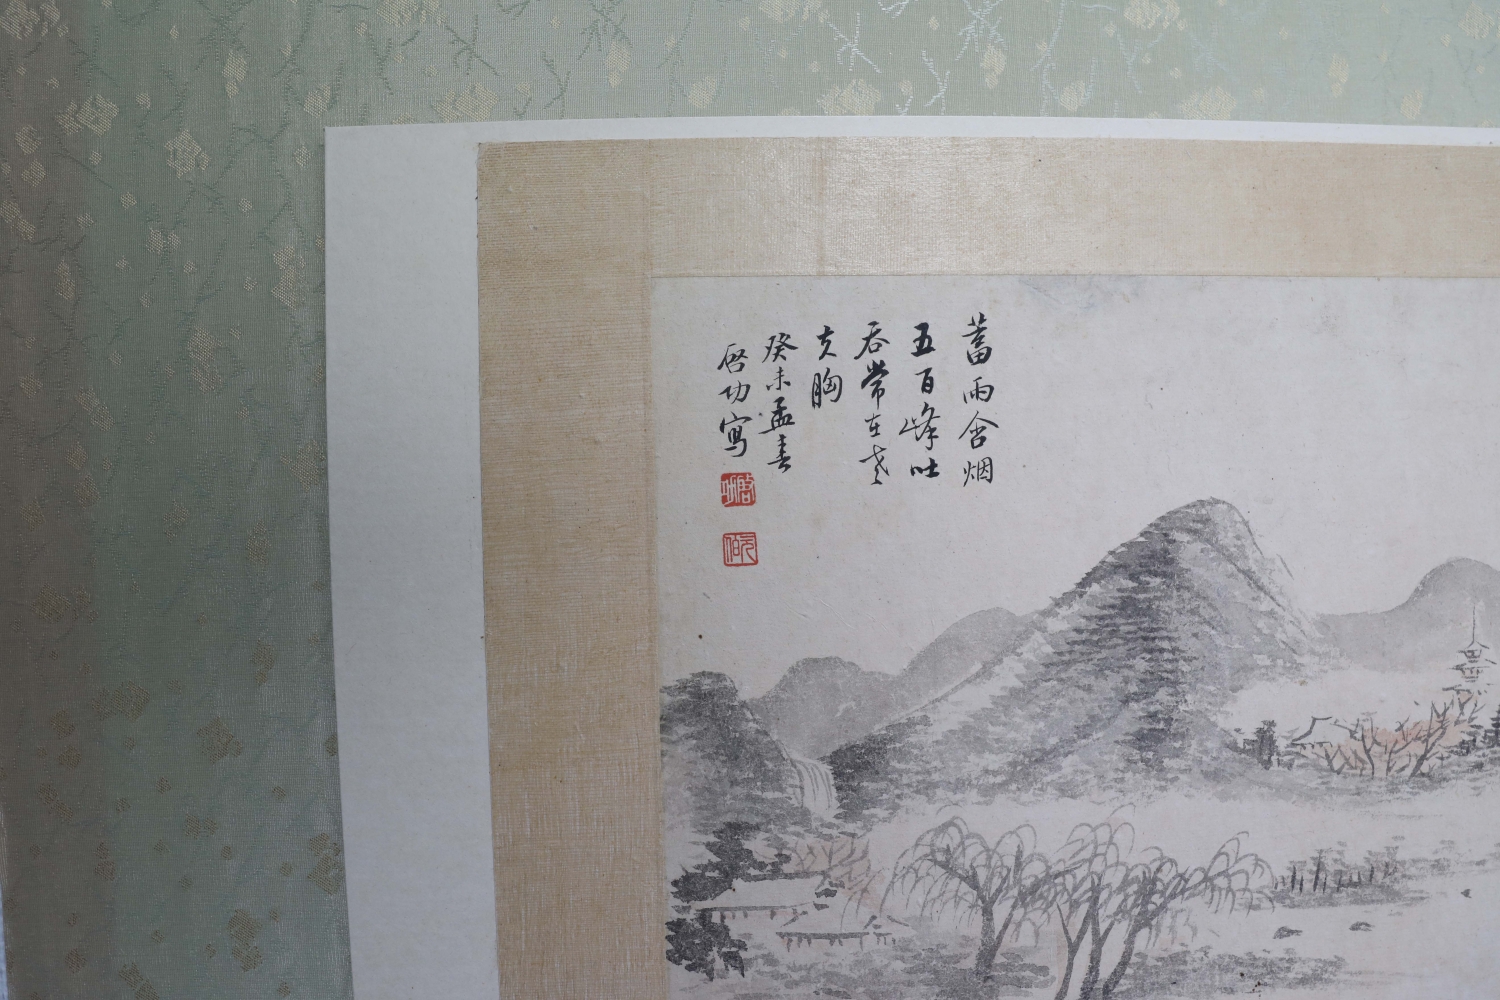 蓄雨含烟
五百峰吐
吞常在老
夫胸
癸未孟春
启功寫
启功
元伯